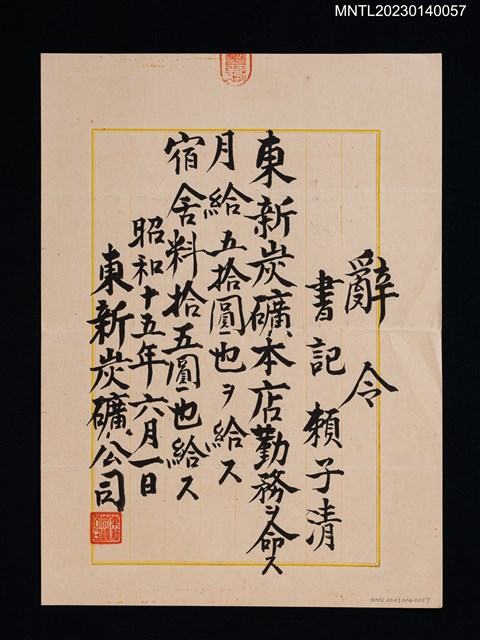 MNTL20230140057
辭令
書記 頼子清
東新炭礦本店勤務ヲ命ス
月給五拾圓也ヲ給ス
宿舎料拾五圓也給ス
昭和十五年六月一日
東新炭礦公司
MNTL20230140057